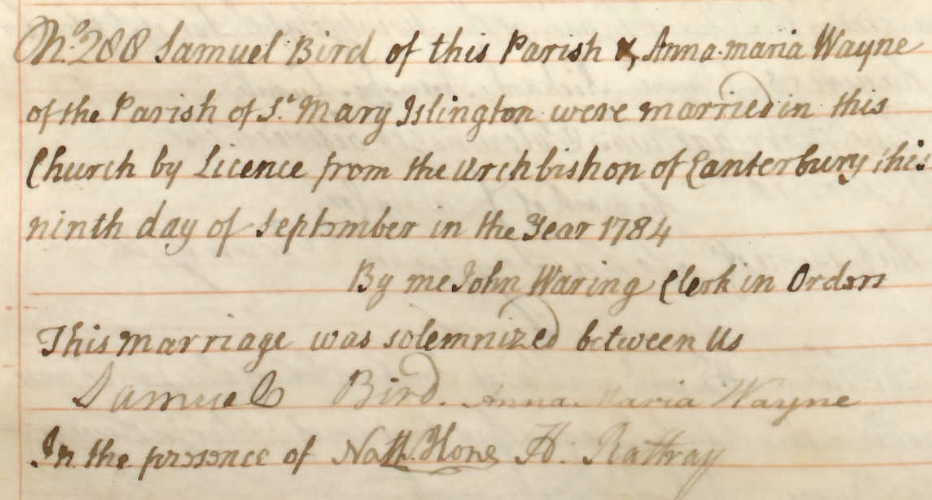 No. 288 Samuel Bird of this Parish & Anna maria Wayne
of the Parish of St. Mary Islington were married in this
Church by Licence from the Archbishop of Canterbury this
ninth day of September in the Year 1784
By me John Waring Clerk in Orders
This marriage was solemnized between Us
Samuel Bird. Anna Maria Wayne
In the presence of Nath Hone H: Rattray